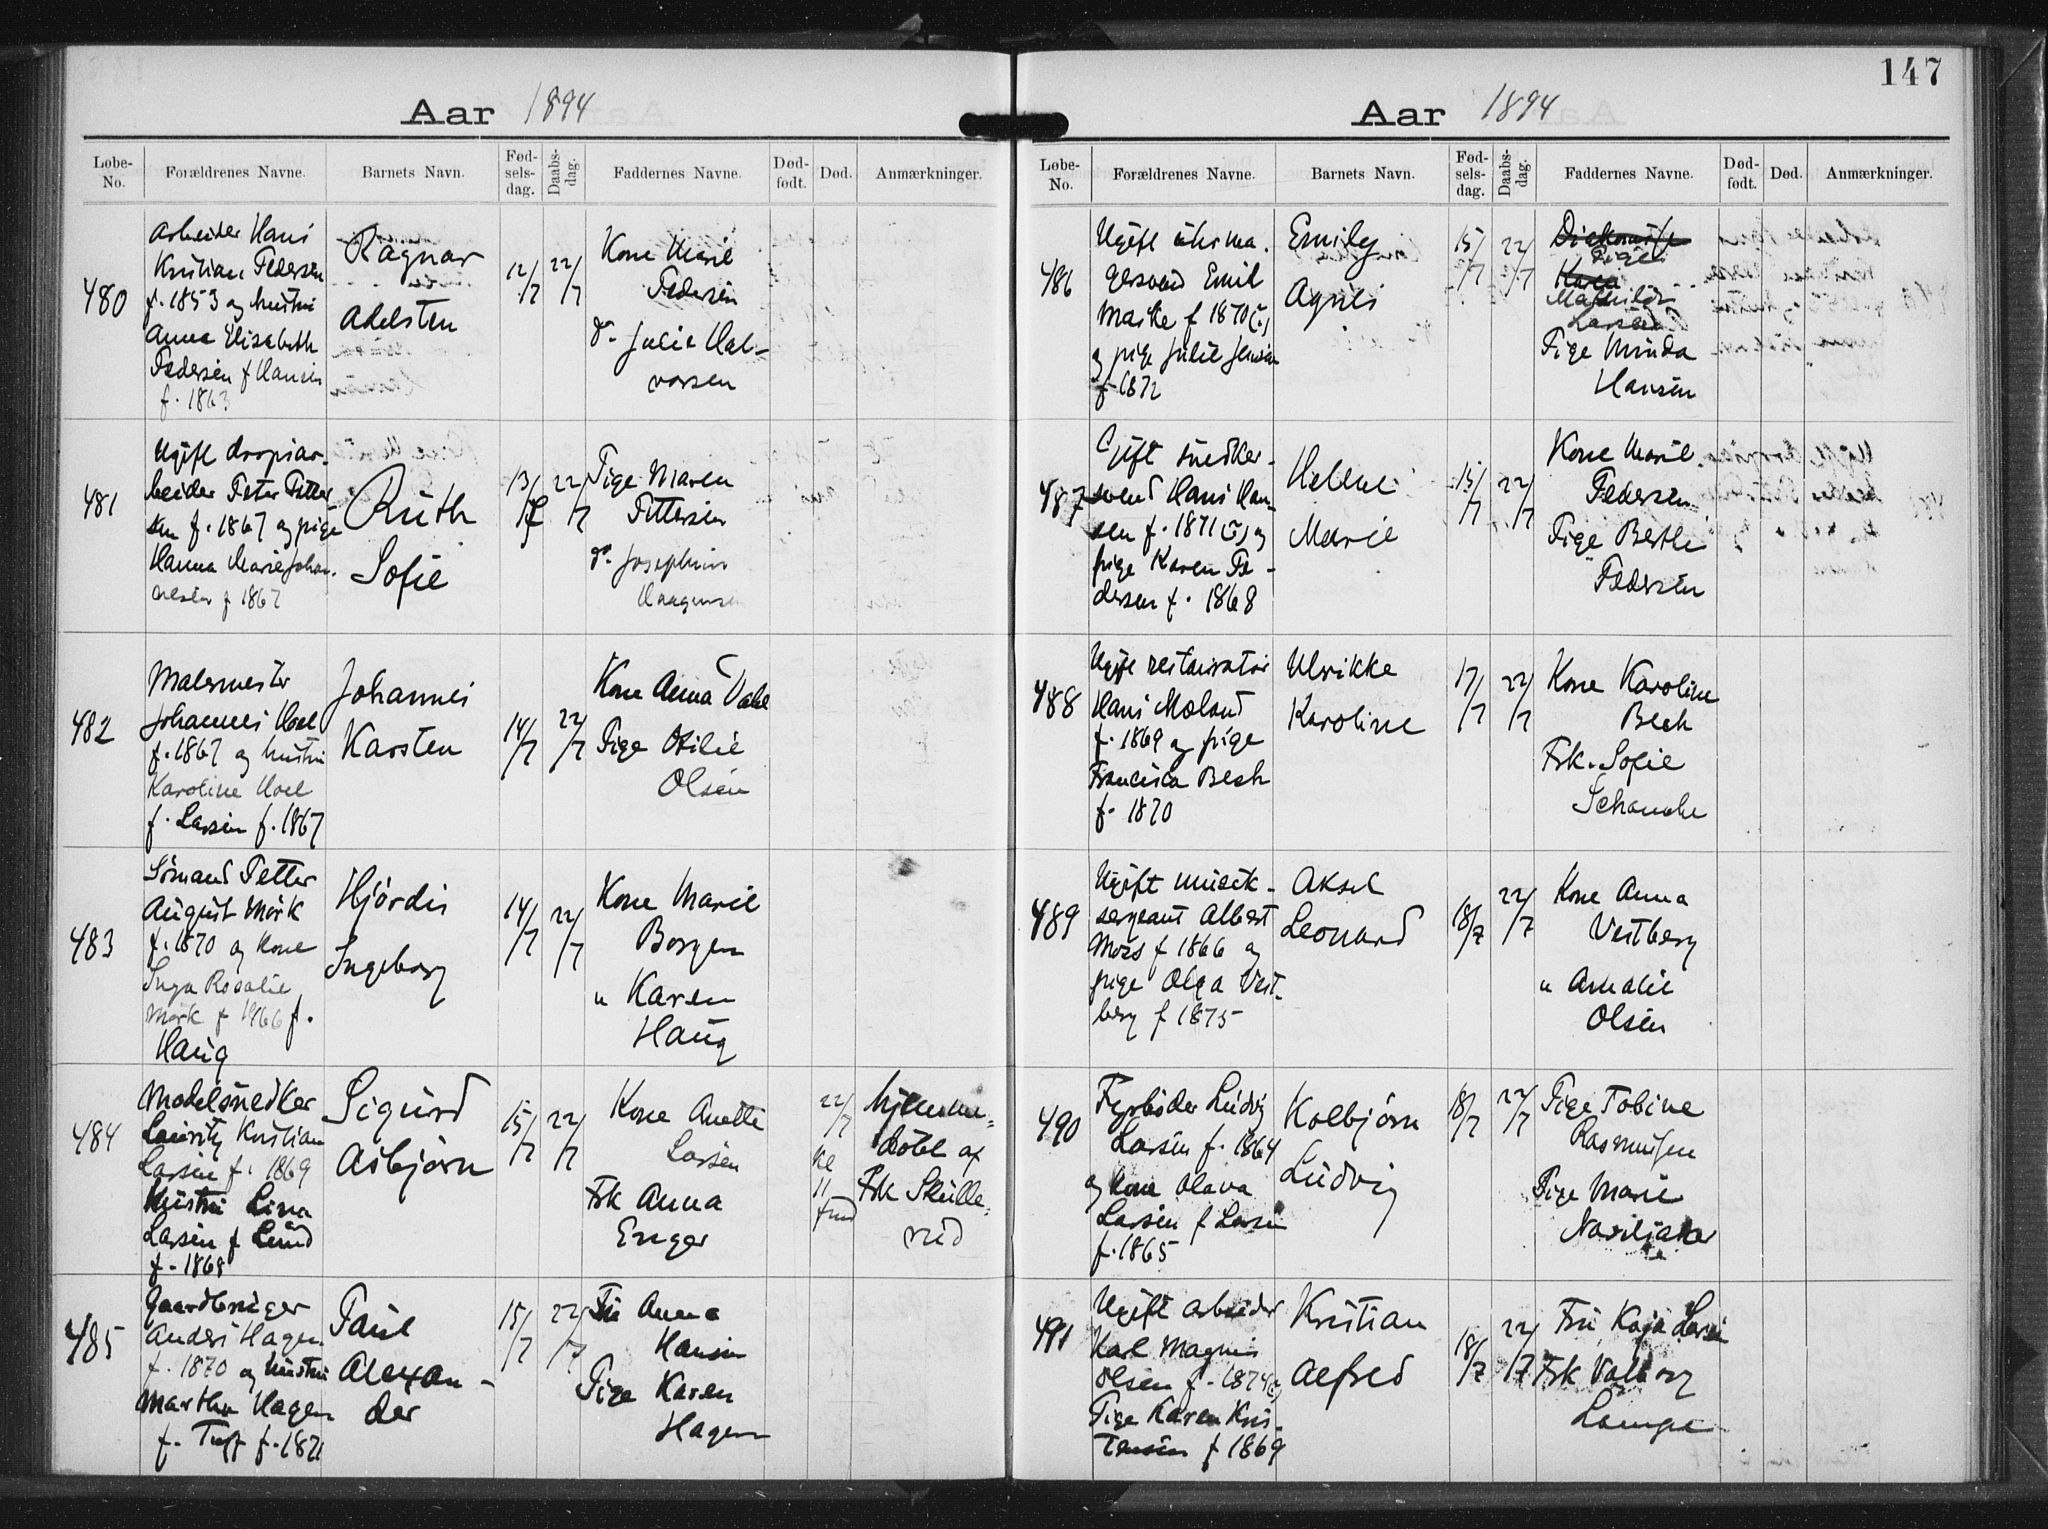 147
Aar 1894
Løbe-No.
Forældrenes Navne.
Barnets Navn.
Fød-selsdag.
Daabs-dag.
Faddernes Navne.
Død-født.
Død.
Anmærkninger.
480
Arbeider Hans
Kristian Pedersen
f. 1853 og hustru
Anna Elisabeth
Pedersen f Hansen
f. 1863
Ragnar
Adelsten
12/7
22/7
Kone Marie
Pedersen
do Julie Hal-
vorsen
481
Ugift dropsar-
beider Peter Petter
sen f. 1867 og pige
Hanna Marie Johan-
nesen f 1867
Ruth
Sofie
13/7
22/7
Pige Maren
Pettersen
do Josephine
Haagensen
482
Malermester
Johannes Hoel
f. 1867 og hustru
Karoline Hoel
f. Larsen f. 1867
Johannes
Karsten
14/7
22/7
Kone Anna Dahl
Pige Otilie
Olsen
483
Sømand Petter
August Mørk
f. 1870 og Kone
Inga Rosalie
Mørk f 1866 f.
Haug
Hjørdis
Ingeborg
14/7
22/7
Kone Marie
Borgen
" Karen
Haug
484
Modelsnedker
Lauritz Kristian
Larsen f. 1869
Hustru Lina
Larsen f Lund
f. 1868
Sigurd
Asbjørn
15/7
22/7
Kone Anette
Larsen
Frk Anna
Enger
22/7
kl
11
fmd
hjemme-
døbt af
Frk Skulle-
rud
485
Gaardbruger
Anders Hagen
f. 1870 og hustru
Martha Hagen
f. Tuft f. 1871
Paul
Alexan-
der
15/7
22/7
Fru Anna
Hansen
Pige Karen
Hagen
Aar 1894
Løbe-No.
Forældrenes Navne.
Barnets Navn.
Fød-selsdag.
Daabs-dag.
Faddernes Navne.
Død-født.
Død.
Anmærkninger.
486
Ugift uhrma-
gersvend Emil
Maske f 1870
og pige Julie Jensen
f 1872
Emily
Agnes
15/7
22/7
Pige
Mathilde
Larsen
Pige Minda
Hansen
487
Gift snedker-
svend Hans Han-
sen f. 1871 og
pige Karen Pe-
dersen f. 1868
Hellene
Marie
15/7
22/7
Kone Marie
Pedersen
Pige Berthe
Pedersen
488
Ugift restauratør
Hans Moland
f. 1869 og pige
Francisca Bech
f. 1870
Ulrikke
Karoline
17/7
22/7
Kone Karoline
Bech
Frk. Sofie
Schanche
489
Ugift musik-
sergeant Albert
Moss f 1866 og
pige Olga Vest-
berg f 1875
Aksel
Leonard
18/7
22/7
Kone Anna
Vestberg
" Amalie
Olsen
490
Fyrbøder Ludvig
Larsen f. 1864
og Kone Olava
Larsen f Larsen
f. 1865
Kolbjørn
Ludvig
18/7
22/7
Pige Tobine
Rasmussen
Pige Marie
491
Ugift arbeider
Karl Magnus
Olsen f. 1874
Pige Karen Kris-
tensen f 1869
Kristian
Alfred
18/7
22/7
Fru Kaja Larsen
Frk Valborg
Lampe